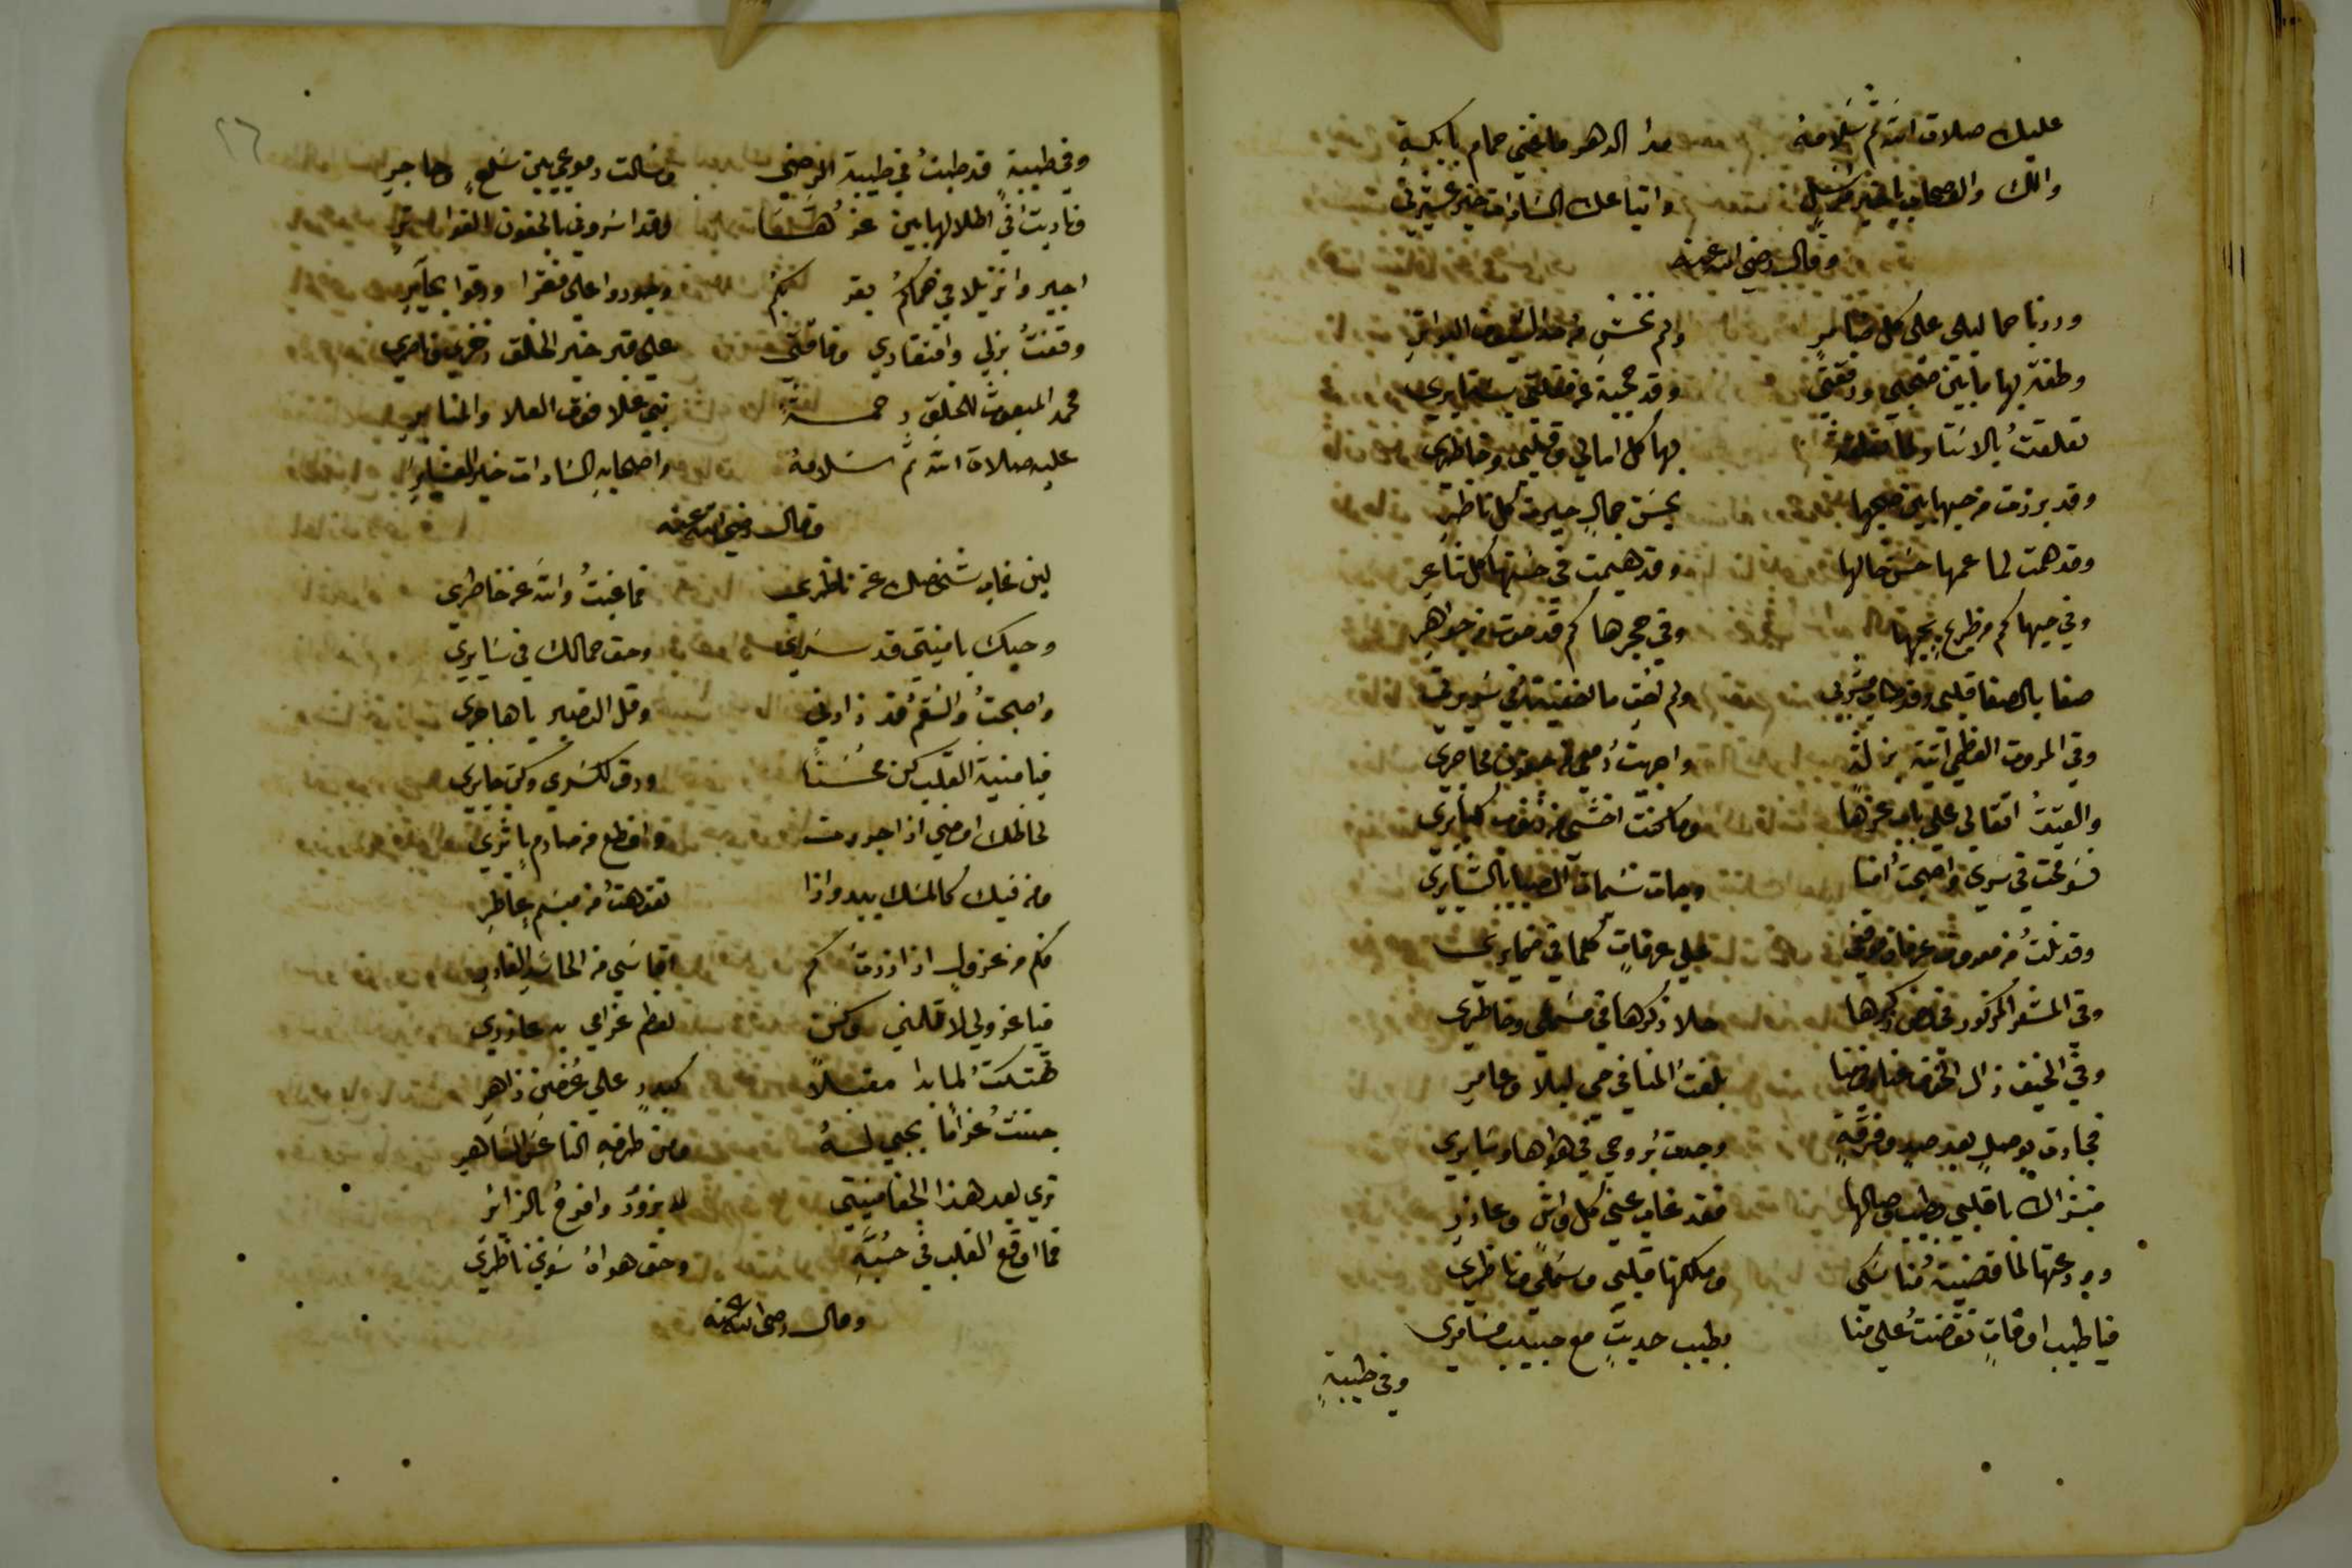 عليك صلاة الله ثم سلامه مدا الدهر ما غنى حمام بايكة
والك والاصحاب يا خير مرسل واتباعك السادات خير عشيرتي
وقال رضي الله عنه
وردنا حما ليلى على كل ضامر ولم نخش من حد السيوف البواتر
وطفنا بها ما بين صحبي ورفقتي وقد حجبت عن مقلتي بستايري
تعلقت بالاستار لما تعلقت بها كل امالي وقلبي وخاطري
وقد برزت من حيها بين صحبها بحسن جمال حيرت كل ناظر
وقد همت لما عمها حسن خالها وقد هيمت في حسنها كل شاعر
وفي حيها كم من طريح بحبها وفي حجرها كم قد حوت من جواهر
صفا بالصفا قلبي وقد طاب مشربي ولم تخف ما اخفيته في سويرتي
وفي المروة العظمى اتيت بزلة واجريت دمعي من جفون محاجري
والقيت اثقالي على باب عزها وما كنت اخشى من ذنوب كبايري
فسومحت في سري واصبحت امنا وجات نسمات الصبا بالبشايري
وقد نلت من معروف عرفات موقفي على عرفات كلما في ضمايري
وفي المشعر المذكور ذكرها حلا ذكرها في مسمعي وخاطري
وفي الخيف زال الخوف عنا بلغت المنا في حي ليلا وعامر
فجادت بوصل بعد صد وفرقة وجدت بروحي في هواها وسايري
فبشراك يا قلبي بطيب وصالها فقد غاب عني كل واش وعاذر
وودعتها لما قضيت مناسكي وملكتها قلبي وسمعي وناظري
فيا طيب اوقات تقضت على منا بطيب حديث مع حبيب مسامري
وفي طيبة
٢٦
وفي طيبة قد طبت في طيبة الرضي وسالت دموعي بين سلع وحاجر
وناديت في اطلالها بين عز لقد اسروني بالجفون الفواتر
اجيروا نزيلا في حماكم بقربكم وجودوا على فقرا ورقوا بحاير
وقفت بذلي وافتقادي وفاقتي على قبر خير الخلق ذخري وناصري
محمد المبعوث للخلق رحمة نبي علا فوق العلا والمنابر
عليه صلاة الله ثم سلامه واصحابه السادات خير العشاير
وقال رضي الله عنه
لين غاب شخصك عن ناظري فما غبت والله عن خاطري
وحبك يا منيتي قد سري وحق جمالك في سايري
واصبحت والسقم قد زادني وقل التصبر يا هاجري
فيا منية القلب كن محسنا ورق لكسري وكن جابري
لحاظك امضي اذا جردت واقطع من صارم باتري
ومن فيك كالمسك يبدو اذا تفوهت من مبسم عاطر
فكم من عزول اذا زدت كم اقاسي من الحاسد الغادر
فيا عزولي لا تلمني وكن لعظم غرامي به عاذري
تهتكت لما بدا مقبلا كبدر على غصن زاهر
جننت غراما بحبي له ومن طرفه الناعس الساهر
ترى بعد هذا الجفا منيتي يزور وافرح بالزائر
فما اوقع القلب في حبه وحق هواه سوى ناظري
وقال رضي الله عنه